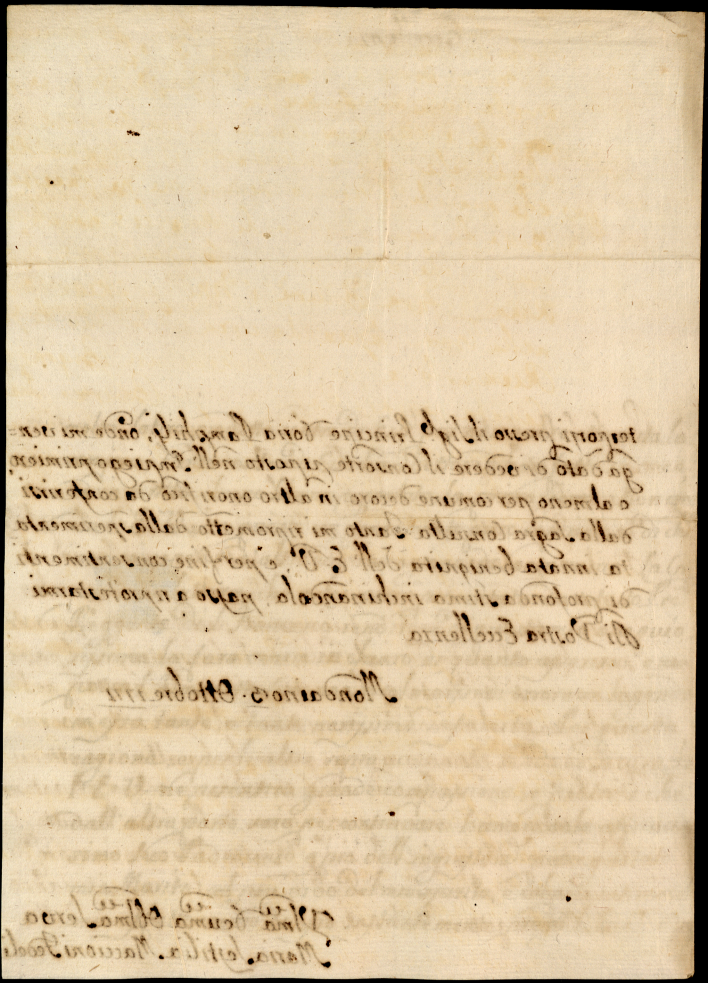 terporsi presso il Sig.r Principe Doria Pamphilj, onde mi ven=
ga dato di vedere il Consorte riposto nell'Impiego primiero,
o almeno per comune decoro in altro onorifico da conferirsi
dalla Sagra Consulta. Tanto mi riprometto dalla sperimenta
ta innata benignità dell'E. V.a e per fine con sentimenti
di profonda stima inchinandola passo a riprotestarmi
Di Vostra Eccellenza
Mondaino 3. Ottobre 1771
Umà Devma Obblma Serva
Maria Maccioni Fedeli